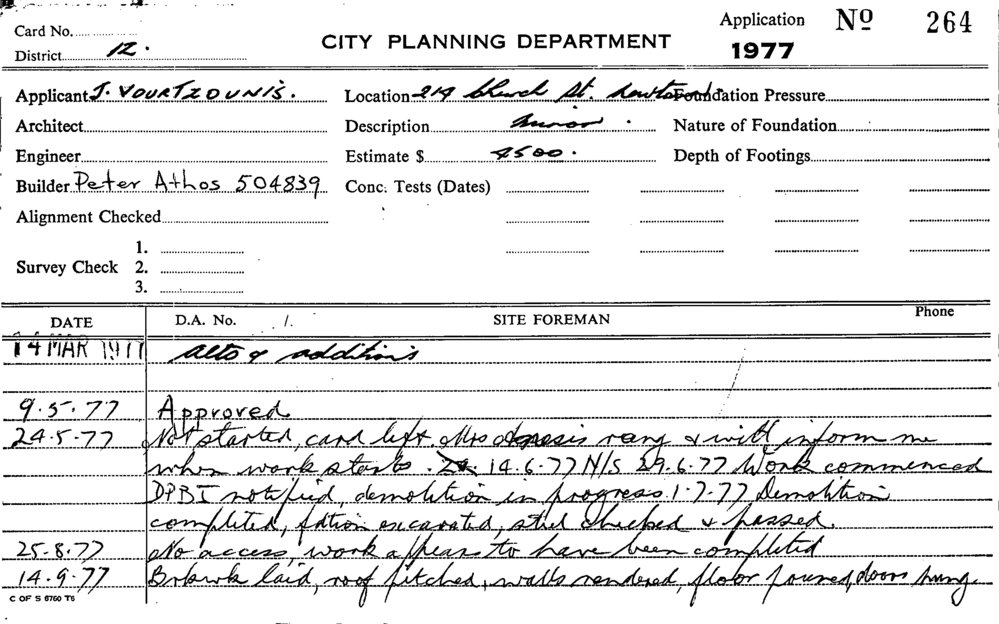 Card No.
Application Nº 264
District 12.
CITY PLANNING DEPARTMENT
1977
Applicant J. VOURTZOUNIS.
Location 219 Church St. Newtown
Foundation Pressure
Architect
Description Minor.
Nature of Foundation
Engineer
Estimate $ 4500.
Depth of Footings
Builder Peter Athos 504839
Conc. Tests (Dates)
Alignment Checked
1.
Survey Check 2.
3.
DATE D.A. No. /. SITE FOREMAN Phone
14 MAR 1977 alts & additions
9.5.77 Approved
24.5.77 Not started, card left Mrs rang & will inform me
when work starts. 14.6.77 N/S 29.6.77 Work commenced
DPBI notified, demolition in progress. 1.7.77 Demolition
completed, fdtion excavated, steel checked & passed.
25.8.77 No access, work appears to have been completed
14.9.77 Brkwk laid, roof pitched, walls rendered, floor poured, doors hung.
C OF S 6760 T6